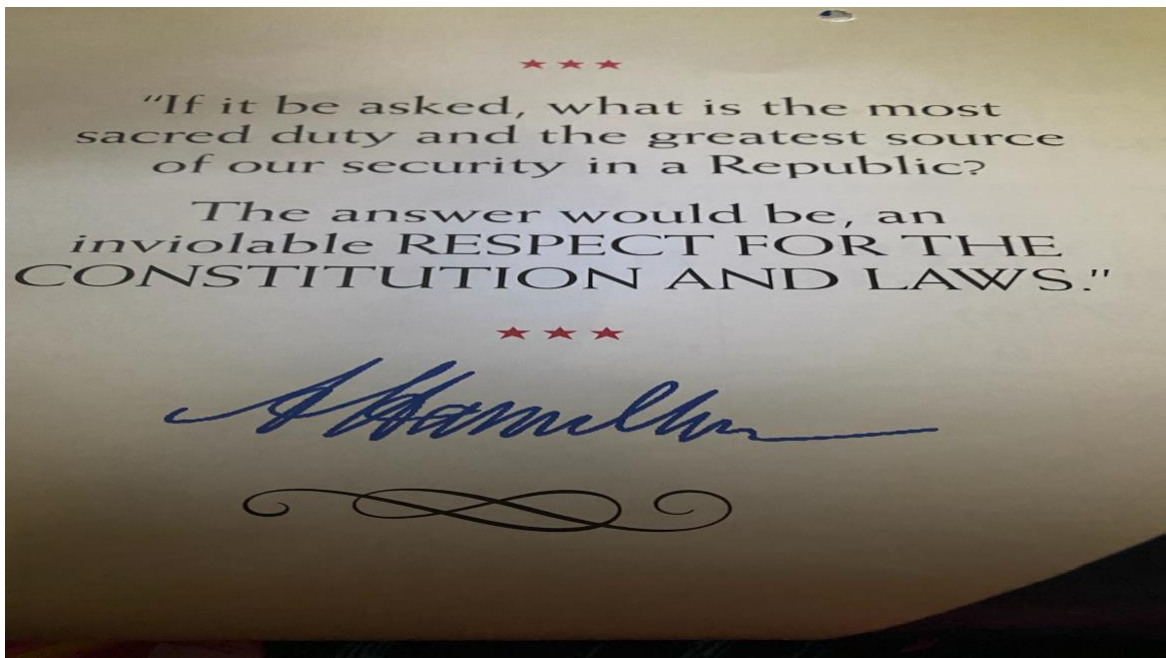 "If it be asked, what is the most
sacred duty and the greatest source
of our security in a Republic?
The answer would be, an
inviolable RESPECT FOR THE
CONSTITUTION AND LAWS."
A Hamilton